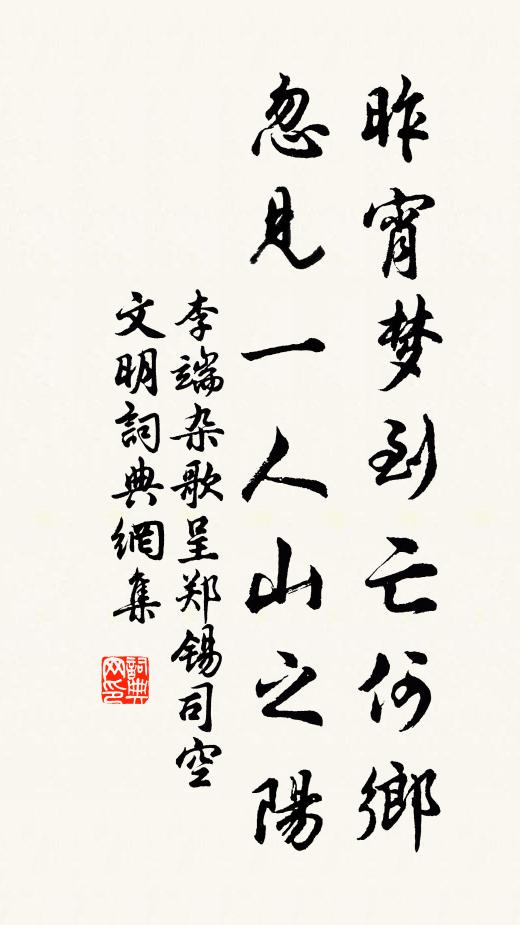 昨宵梦到亡何鄉
忽見一人山之陽
李端杂歌呈郑锡司空
文明詞典網集
詞典网印